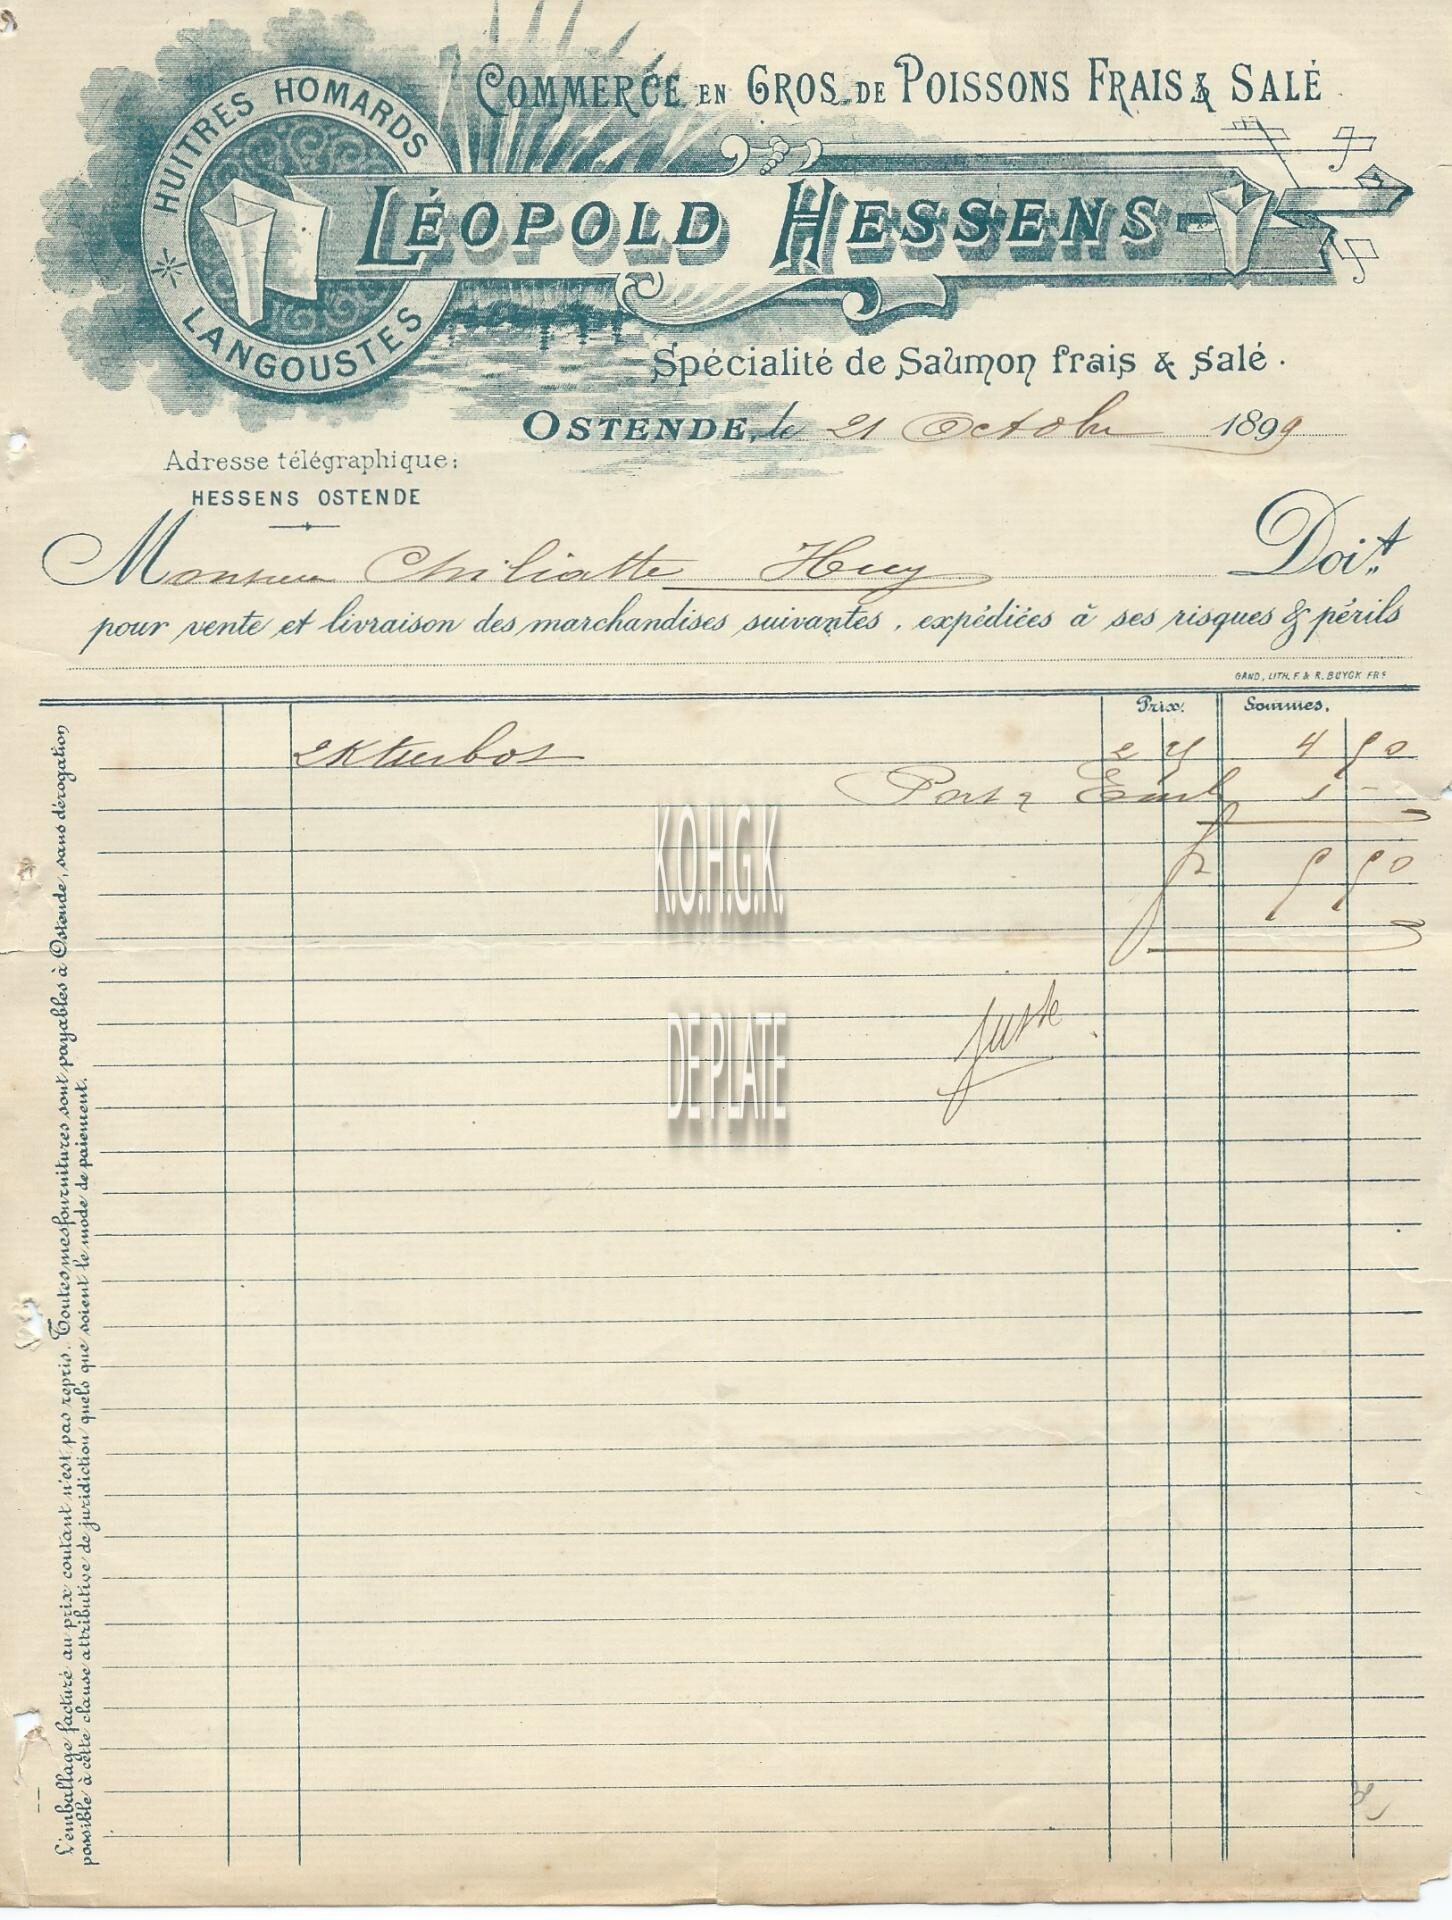 COMMERCE EN GROS DE POISSONS FRAIS & SALÉ
HUITRES HOMARDS
LANGOUSTES
LÉOPOLD HESSENS
Spécialité de Saumon frais & salé.
OSTENDE, le 21 Octobre 1899
Adresse télégraphique:
HESSENS OSTENDE
Monsieur Huy Doit
pour vente et livraison des marchandises suivantes, expédiées à ses risques & périls
GAND, LITH. F. & R. BUYCK FRS
Prix. Sommes.
2K turbot 2 25 4 50
Port & Emb 1 -
fr 5 50
juste
K.O.H.G.K.
DE PLATE
L'emballage facturé au prix coutant n'est pas repris. Toutes mes fournitures sont payables à Ostende, sans dérogation
possible à cette clause attributive de juridiction quels que soient le mode de paiement.